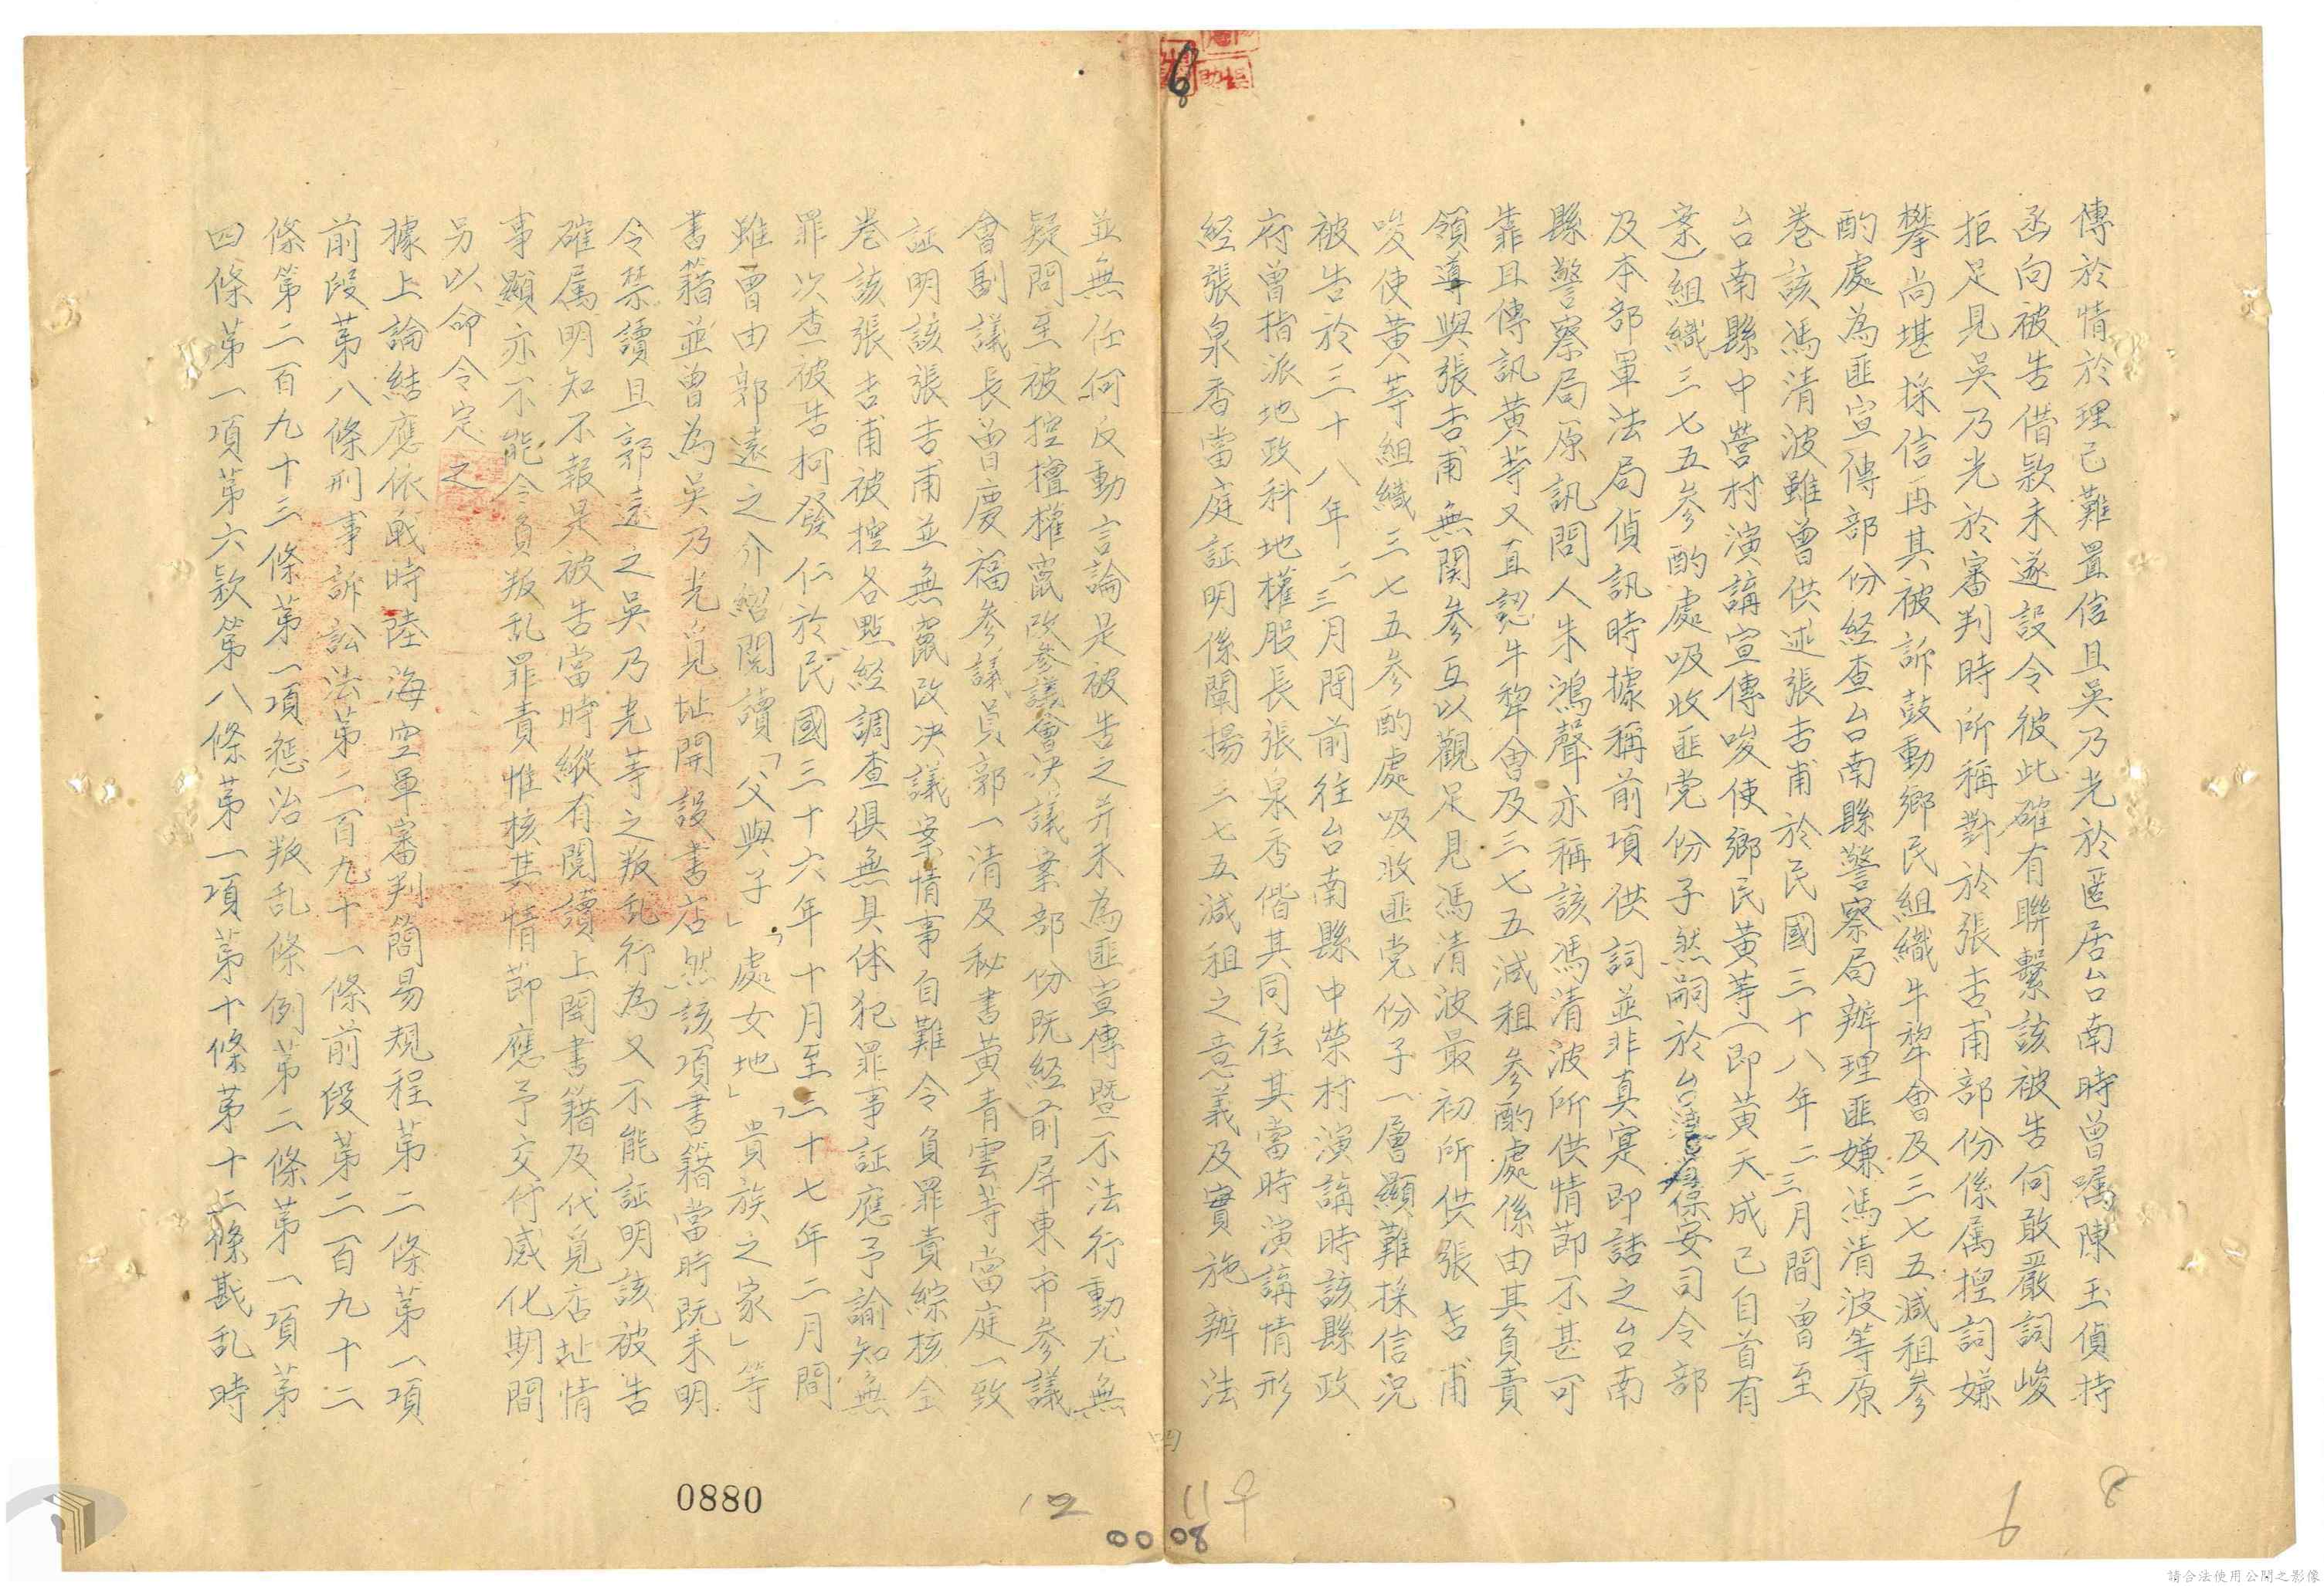 傳於情於理已難置信且吳乃光於匿居台南時曾囑陳玉偵持
函向被告借款未遂設令彼此確有聯繫該被告何敢嚴詞峻
拒足見吳乃光於審判時所稱對於張吉甫部份係属揑詞嫌
攀尚堪採信再其被訴鼓動鄉民組織牛犂會及三七五減租參
酌處為匪宣傳部份經查台南縣警察局辦理匪嫌馮清波等原
卷該馮清波雖曾供述張吉甫於民國三十八年二三月間曾至
台南縣中營村演講宣傳唆使鄉民黃等(即黃天成已自首有
案)組織三七五參酌處吸收匪党份子然嗣於台灣省保安司令部
及本部軍法局偵訊時據稱前項供詞並非真实即詰之台南
縣警察局原訊問人朱鴻聲亦稱該馮清波所供情節不甚可
靠且傳訊黃等又直認牛犂會及三七五減租參酌處係由其負責
領導與張吉甫無関參互以觀足見馮清波最初所供張吉甫
唆使黃等組織三七五參酌處吸收匪党份子一層顯難採信況
被告於三十八年二三月間前往台南縣中榮村演講時該縣政
府曾指派地政科地權股長張泉香偕其同往其當時演講情形
経張泉香當庭証明係闡揚三七五減租之意義及實施辦法
並無任何反動言論是被告之并未為匪宣傳暨不法行動尤無
疑問至被控擅權竄改參議會決議案部份既經前屏東市參議
會副議長曾慶福參議員郭一清及秘書黃青雲等當庭一致
証明該張吉甫並無竄改决議案情事自難令負罪責綜核全
卷該張吉甫被控各點經調查俱無具体犯罪事証應予諭知無
罪次查被告柯發仁於民國三十六年十月至三十七年二月間
雖曾由郭遠之介紹閱讀「父與子」「處女地」「貴族之家」等
書籍並曾為吳乃光覓址開設書店然該項書籍當時既未明
令禁讀且郭遠之吳乃光等之叛乱行為又不能証明該被告
確属明知不報是被告當時縱有閱讀上開書籍及代覓店址情
事顯亦不能令負叛乱罪責惟核其情節應予交付感化期間
另以命令定之
據上論結應依戰時陸海空軍審判簡易規程第二條第一項
前段第八條刑事訴訟法第二百九十一條前段第二百九十二
條第二百九十三條第一項惩治叛乱條例第二條第一項第
四條第一項第六款第八條第一項第十條第十二條戡乱時
0880
12
11
0008
6
8
四
請合法使用公開之影像